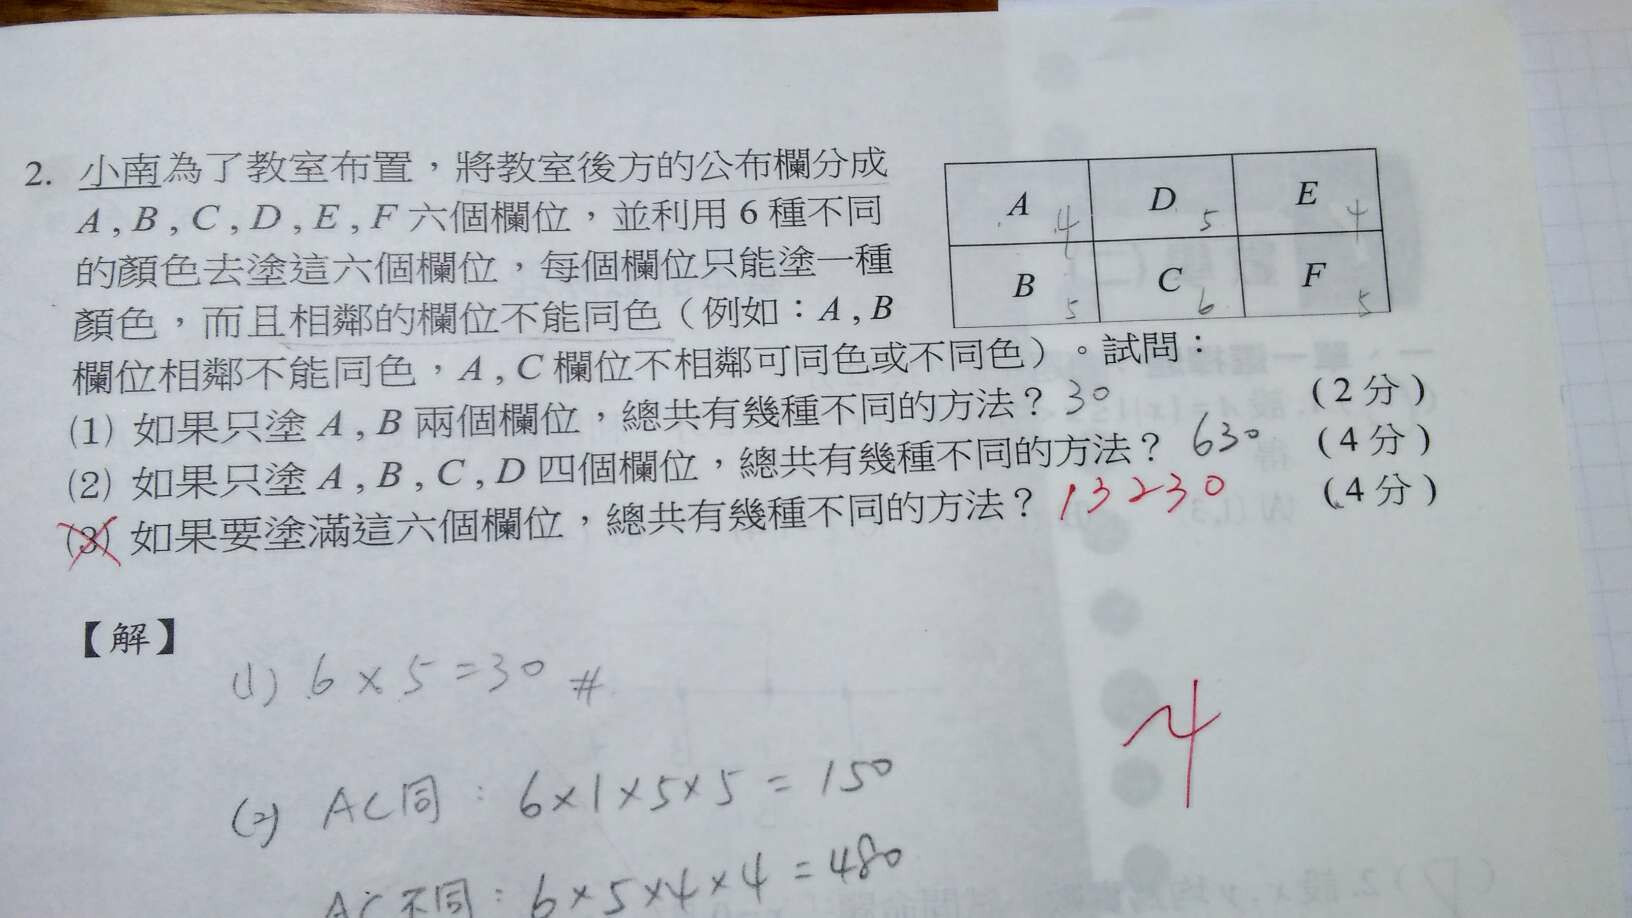 2. 小南為了教室布置，將教室後方的公布欄分成
A , B , C , D , E , F 六個欄位，並利用 6 種不同
的顏色去塗這六個欄位，每個欄位只能塗一種
顏色，而且相鄰的欄位不能同色（例如：A , B
欄位相鄰不能同色，A , C 欄位不相鄰可同色或不同色）。試問：
(1) 如果只塗 A , B 兩個欄位，總共有幾種不同的方法？30 (2 分)
(2) 如果只塗 A , B , C , D 四個欄位，總共有幾種不同的方法？630 (4 分)
(3) 如果要塗滿這六個欄位，總共有幾種不同的方法？13230 (4 分)
A 4 D 5 E 4
B 5 C 6 F 5
【解】
(1) 6×5=30 #
4
(2) AC同：6×1×5×5=150
AC不同：6×5×4×4=480